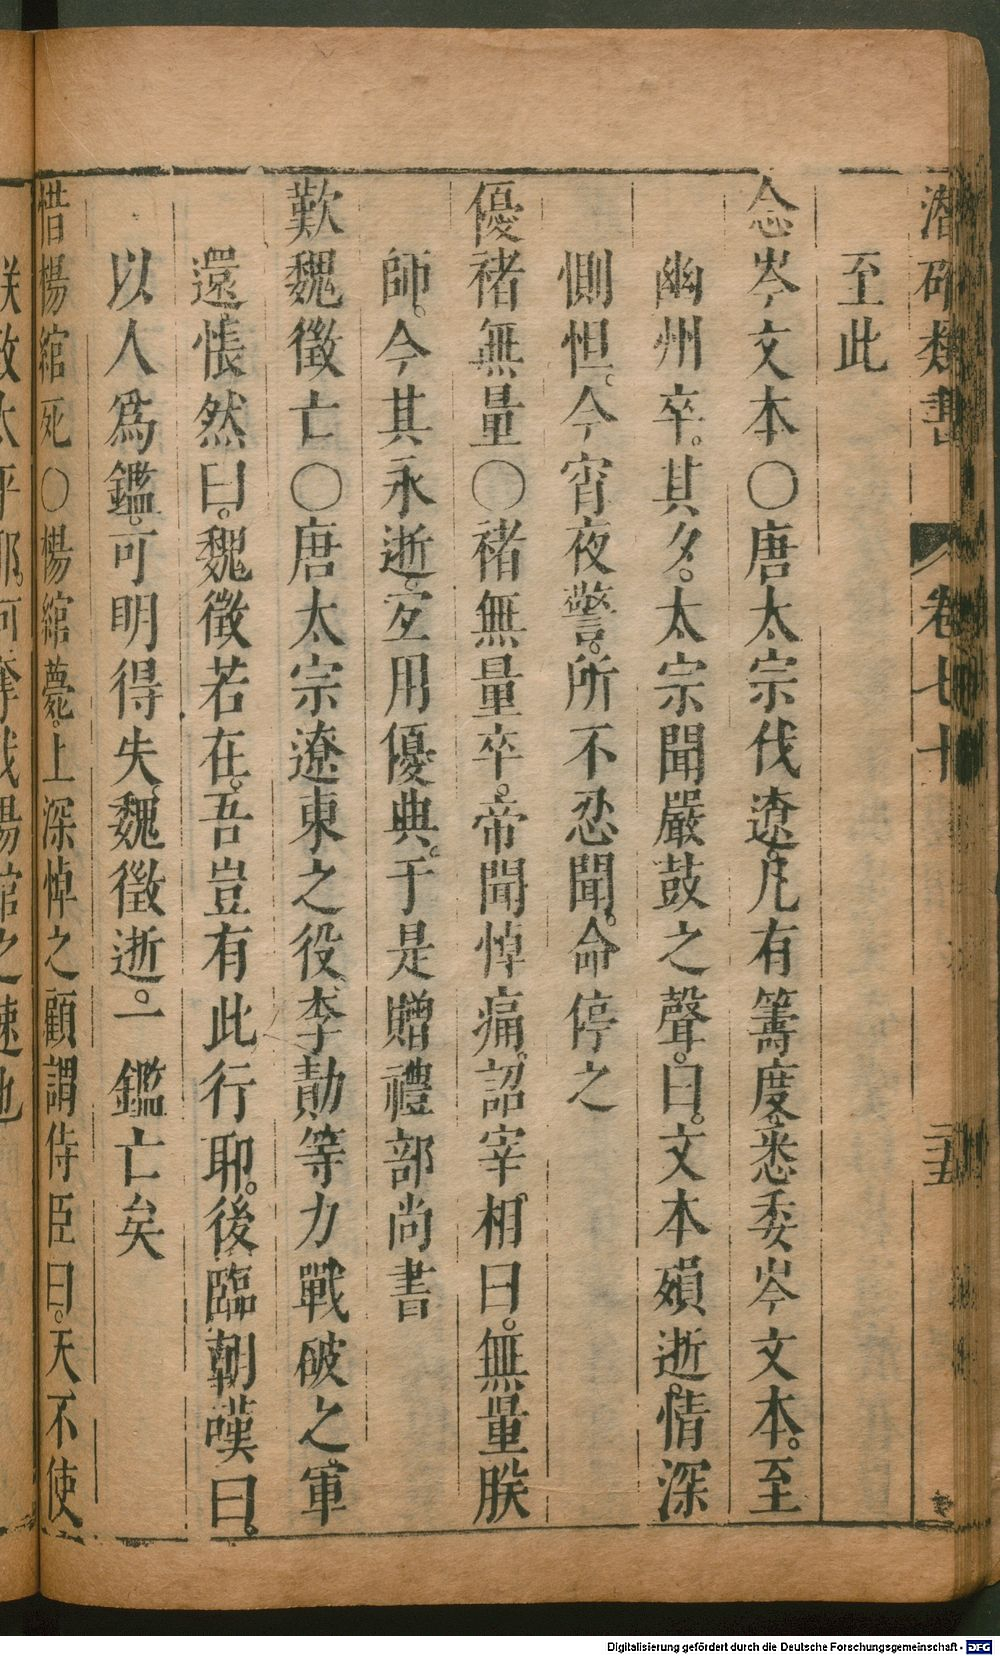 潛確類書
卷七十
二十五
至此
念岑文本○唐太宗伐遼凡有籌度悉委岑文本。至
幽州卒。其夕。太宗聞嚴鼓之聲。曰。文本殞逝。情深
惻怛。今宵夜警。所不忍聞。命停之
優禇無量○禇無量卒。帝聞悼痛。詔宰相曰。無量朕
師。今其永逝。宐用優典。于是贈禮部尚書
歎魏徵亡○唐太宗遼東之役、李勣等力戰破之。軍
還。悵然曰。魏徵若在。吾豈有此行耶。後臨朝嘆曰。
以人爲鑑。可明得失。魏徵逝。一鑑亡矣
惜楊綰死○楊綰薨。上深悼之顧謂侍臣曰。天不使
朕致太平耶。何奪我楊綰之速也
Digitalisierung gefördert durch die Deutsche Forschungsgemeinschaft - DFG